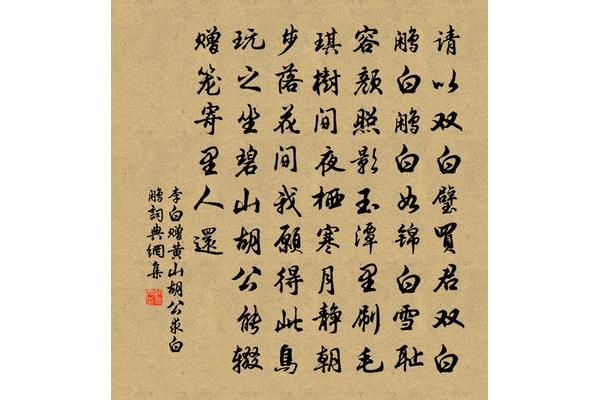 请以双白璧買君双白
鹏白鹏白如锦白雪耻
容颜照影玉潭里刷毛
琪樹间夜栖寒月静朝
步落花间我願得此鳥
玩之坐碧山胡公能辍
赠笼寄里人還
李白赠黄山胡公求白
鹏詞典網集